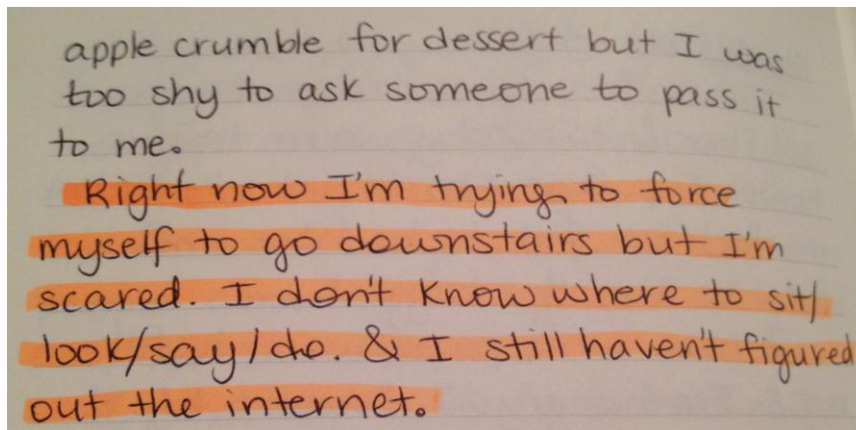 apple crumble for dessert but I was
too shy to ask someone to pass it
to me.
Right now I'm trying to force
myself to go downstairs but I'm
scared. I don't know where to sit/
look/say/do. & I still haven't figured
out the internet.